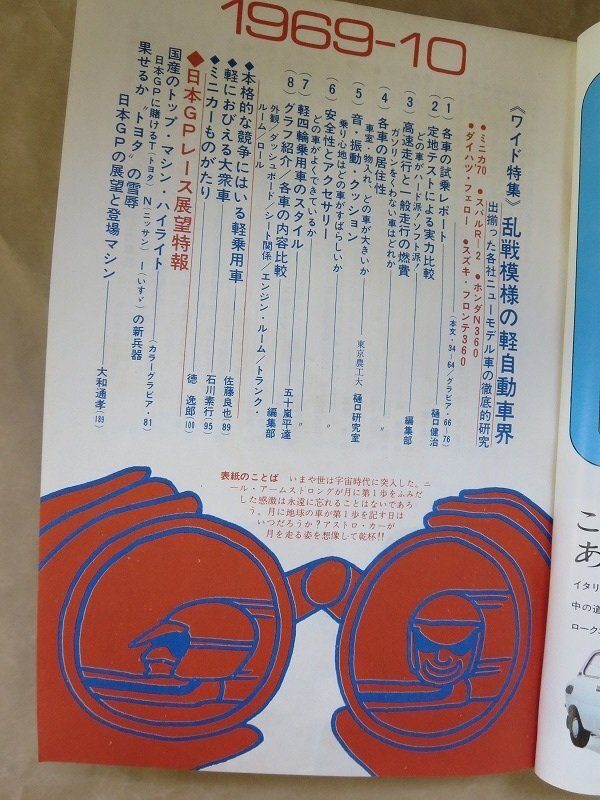 1969-10
《ワイド特集》乱戦模様の軽自動車界
出揃った各社ニューモデル車の徹底的研究
●ミニカ'70 ●スバルR-2 ●ホンダN360
●ダイハツ・フェロー ●スズキ・フロンテ360
(本文・34-64/グラビア・66-76)
(1) 各車の試乗レポート
どの車がハード派/ソフト派!
(2) 定地テストによる実力比較 樋口健治
(3) 高速走行と一般走行の燃費 編集部
ガソリンをくわない車はどれか
(4) 各車の居住性 〃
車室・物入れ、どの車が大きいか
(5) 音・振動・クッション 東京農工大 樋口研究室
乗り心地はどの車がすばらしいか
(6) 安全性とアクセサリー 〃
どの車がよくできているか
(7) 軽四輪乗用車のスタイル 五十嵐平達
(8) グラフ紹介/各車の内容比較 編集部
外観/ダッシュボード/シート関係/エンジン・ルーム/トランク・
ルーム/ロール
◆本格的な競争にはいる軽乗用車 佐藤良也(89)
◆軽におびえる大衆車 石川素行(95)
◆ミニカーものがたり 徳 逸郎(100)
◆日本GPレース展望特報
国産のトップ・マシン・ハイライト (カラーグラビア・81)
日本GPに賭けるT(トヨタ) N(ニッサン) I(いすゞ)の新兵器
果せるか〝トヨタ〟の雪辱
日本GPの展望と登場マシン 大和通孝(189)
表紙のことば いまや世は宇宙時代に突入した。ニ
ール・アームストロングが月に第1歩をふみだ
した感激は永遠に忘れることはないであろ
う。月に地球の車が第1歩を記す日は
いつだろうか?アストロ・カーが
月を走る姿を想像して乾杯!!
こ
あ
イタリ
中の道
ローク